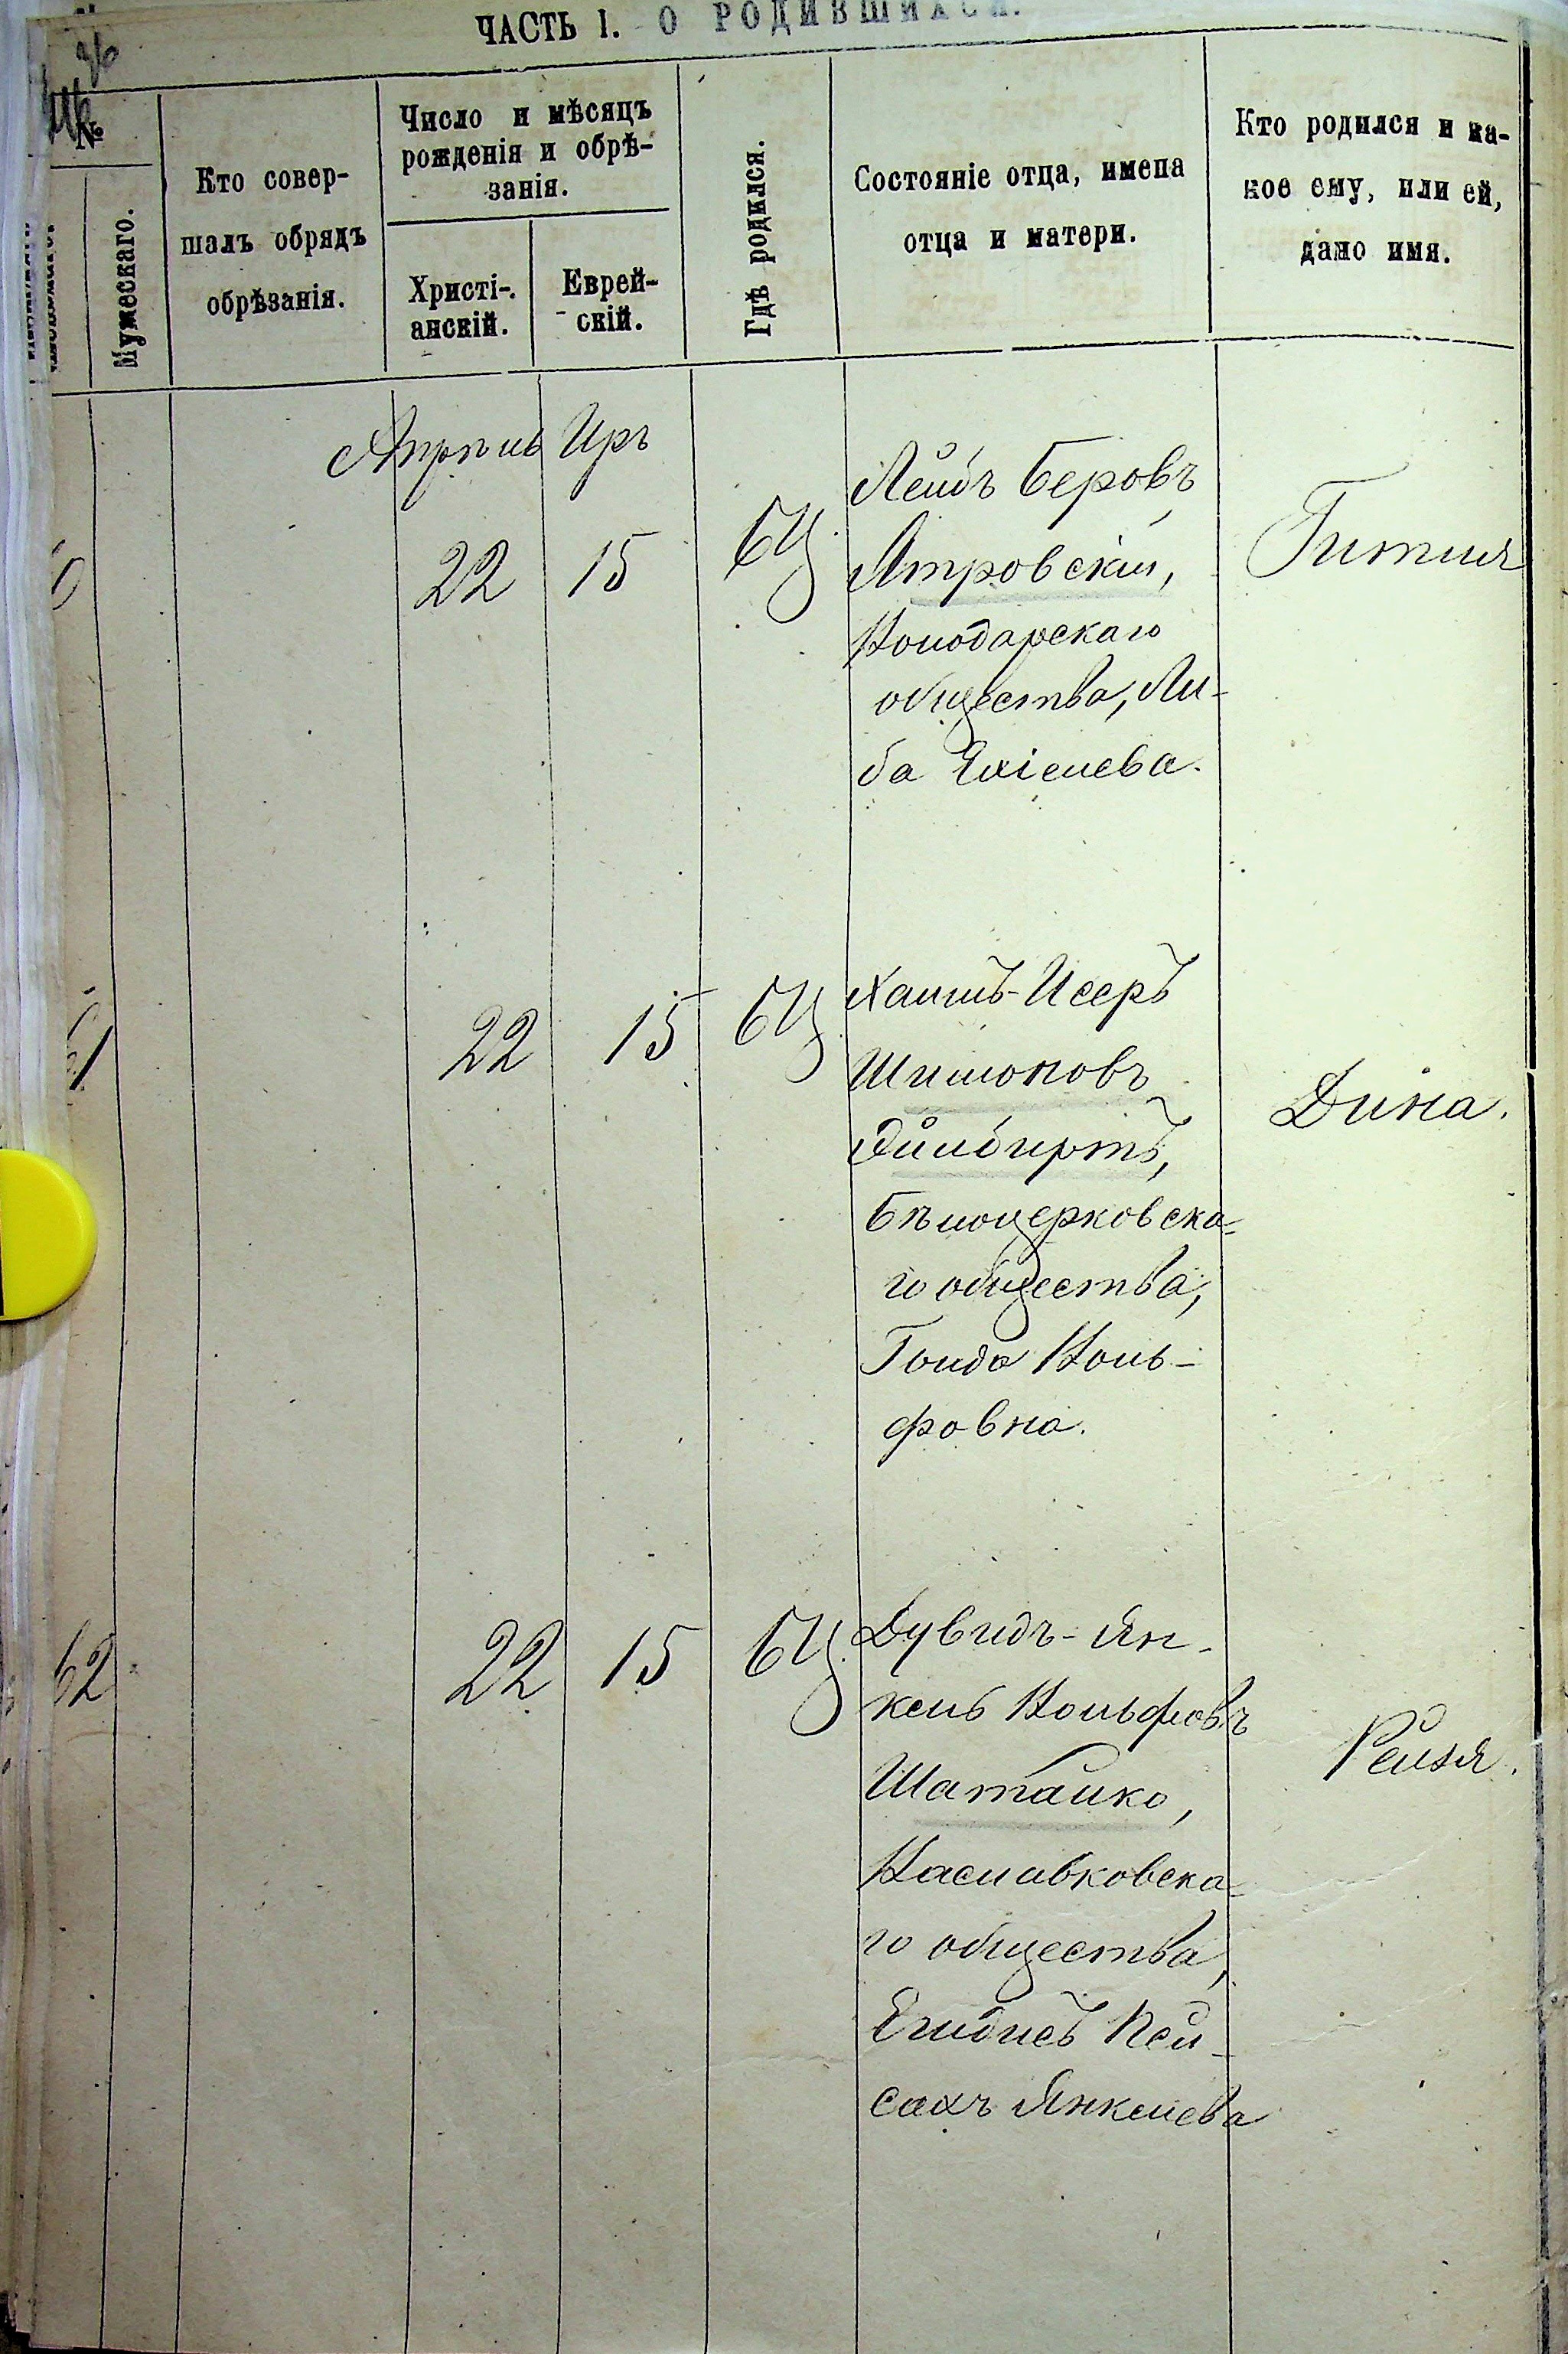 ЧАСТЬ I. О РОДИВШИХСЯ.
№
Мужескаго.
Кто совер-
шалъ обрядъ
обрѣзанія.
Число и мѣсяцъ
рожденія и обрѣ-
занія.
Христі-
анскій.
Еврей-
скій.
Гдѣ родился.
Состояніе отца, имена
отца и матери.
Кто родился и ка-
кое ему, или ей,
дано имя.
Апрѣль Иръ
22 15 БЦ
Лейбъ Беровъ
Ятровскій,
общества, Ли-
ба Ехіелева.
Гитля
61 22 15 БЦ
Хаимъ-Исеръ
Шимоновъ
Бѣлоцерковска-
го общества,
Голда Воль-
фовна.
Дина.
62 22 15 БЦ
Дувидъ-Ян-
кель Вольфовъ
Шатайло,
го общества,
Пей-
сахъ Янкелева
Рейзя.